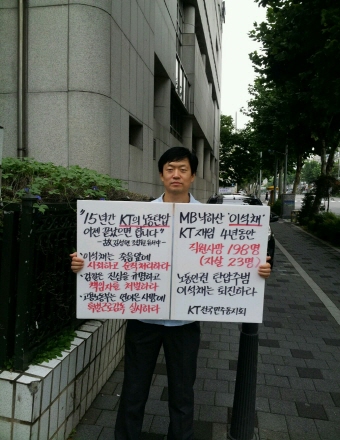 "15년간 KT의 노동탄압
이젠 끝났으면 합니다"
이석채는 죽음앞에
사죄하고 유족
검찰은 진실을 규명하고
책임자를 처벌하라
고용노동부는 연이은 사망에
특별근로감독 실시하라
MB낙하산 '이석채'
KT재임 4년동안
직원사망 198명
(자살 23명)
노동인권 탄압주범
이석채는 퇴진하라
KT전국민주동지회